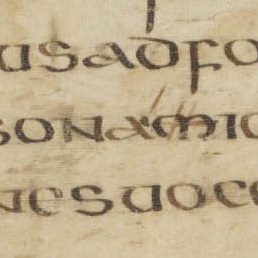 usadfo
sonamic
nesuoce